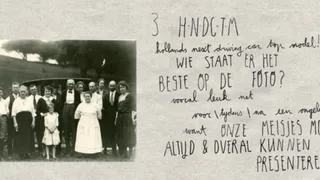 3 H·NDG·TM
hollands next driving car top model!!
WIE STAAT ER HET
BESTE OP DE FOTO?
vooral leuk met
voor \ tijdens \ na een ongel
want ONZE MEISJES MO
ALTIJD & OVERAL KUNNEN
PRESENTERE